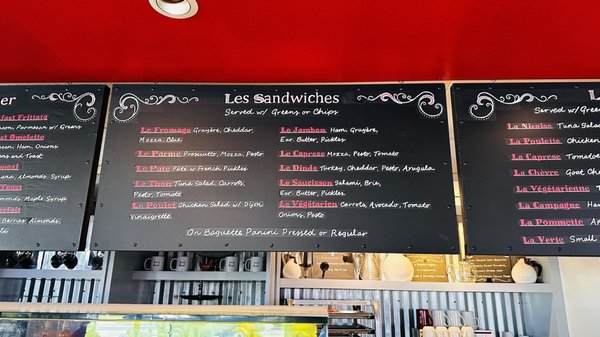 er
ast Frittata
Parmesan w/ Greens
ast Omelette
Ham, Onions
Toast
meal
Almonds, Syrup
Toast
Maple Syrup
arfait
Berries, Almonds,
Les Sandwiches
Served w/ Greens or Chips
Le Fromage Gruyère, Cheddar,
Mozza, Bleu
Le Parme Prosciutto, Mozza, Pesto
Le Pate Pâté w/ French Pickles
Le Thon Tuna Salad, Carrots,
Pesto, Tomato
Le Poulet Chicken Salad w/ Dijon
Vinaigrette
Le Jambon Ham, Gruyère,
Eur. Butter, Pickles
Le Caprese Mozza, Pesto, Tomato
Le Dinde Turkey, Cheddar, Pesto, Arugula
Le Saucisson Salami, Brie,
Eur. Butter, Pickles
Le Végétarien Carrots, Avocado, Tomato
Onions, Pesto
On Baguette Panini Pressed or Regular
Served w/ Gree
La Nicoise Tuna Salad
La Poulette Chicken
La Caprese Tomatoe
La Chèvre Goat Che
La Végétarienne
La Campagne Ham
La Pommette Ar
La Verte Small